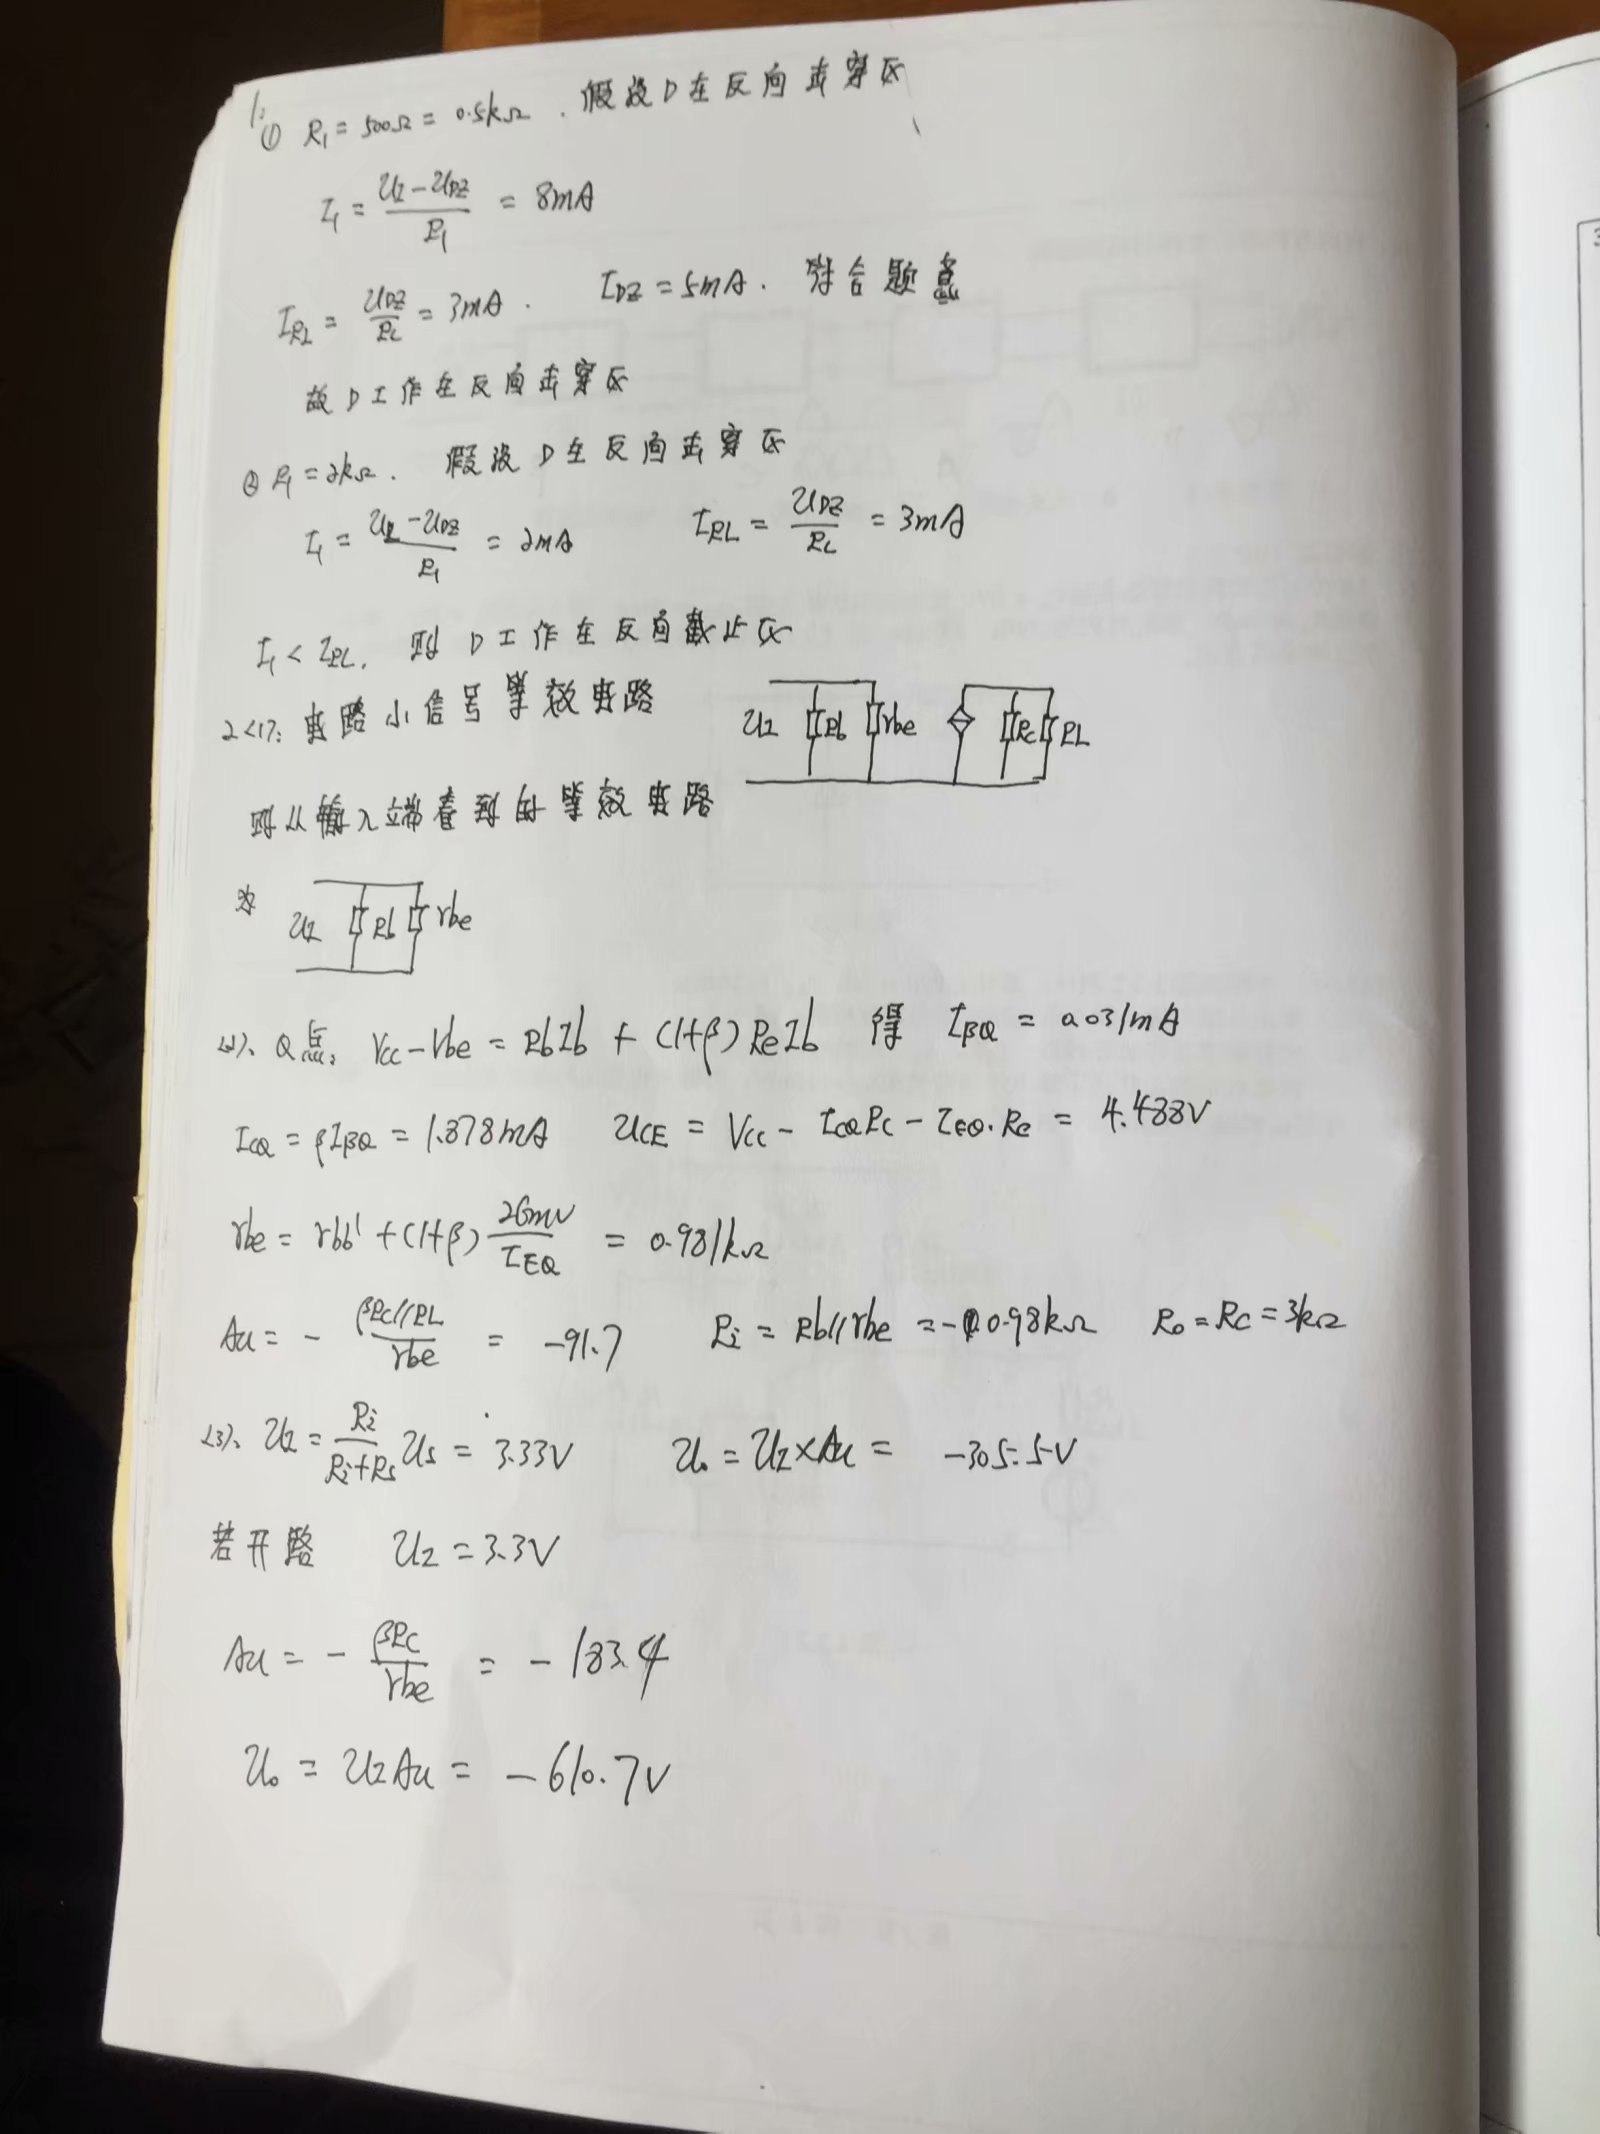 1:
① R₁ = 500Ω = 0.5kΩ . 假设D在反向击穿区
I₁ = (U_I - U_DZ)/R₁ = 8mA
I_RL = U_DZ/R_L = 3mA . I_DZ = 5mA . 符合题意
故D工作在反向击穿区
② R₁ = 2kΩ . 假设D在反向击穿区
I₁ = (U_I - U_DZ)/R₁ = 2mA I_RL = U_DZ/R_L = 3mA
I₁ < I_RL, 则D工作在反向截止区
2<1>: 电路小信号等效电路 U_I Rb rbe Rc RL
则从输入端看到的等效电路
为 U_I Rb rbe
<2>、Q点: Vcc - Vbe = RbIb + (1+β)ReIb 得 I_BQ = 0.031mA
I_CQ = βI_BQ = 1.878mA U_CE = Vcc - I_CQRc - I_EQ·Re = 4.488V
rbe = rbb' + (1+β) 26mV/I_EQ = 0.981kΩ
Au = - βRc//RL/rbe = -91.7 Ri = Rb//rbe = -0.98kΩ Ro = Rc = 3kΩ
<3>、U_I = Ri/(Ri+Rs) Us = 3.33V Uo = U_I×Au = -305.5V
若开路 U_I = 3.3V
Au = - βRc/rbe = -183.4
Uo = U_IAu = -610.7V